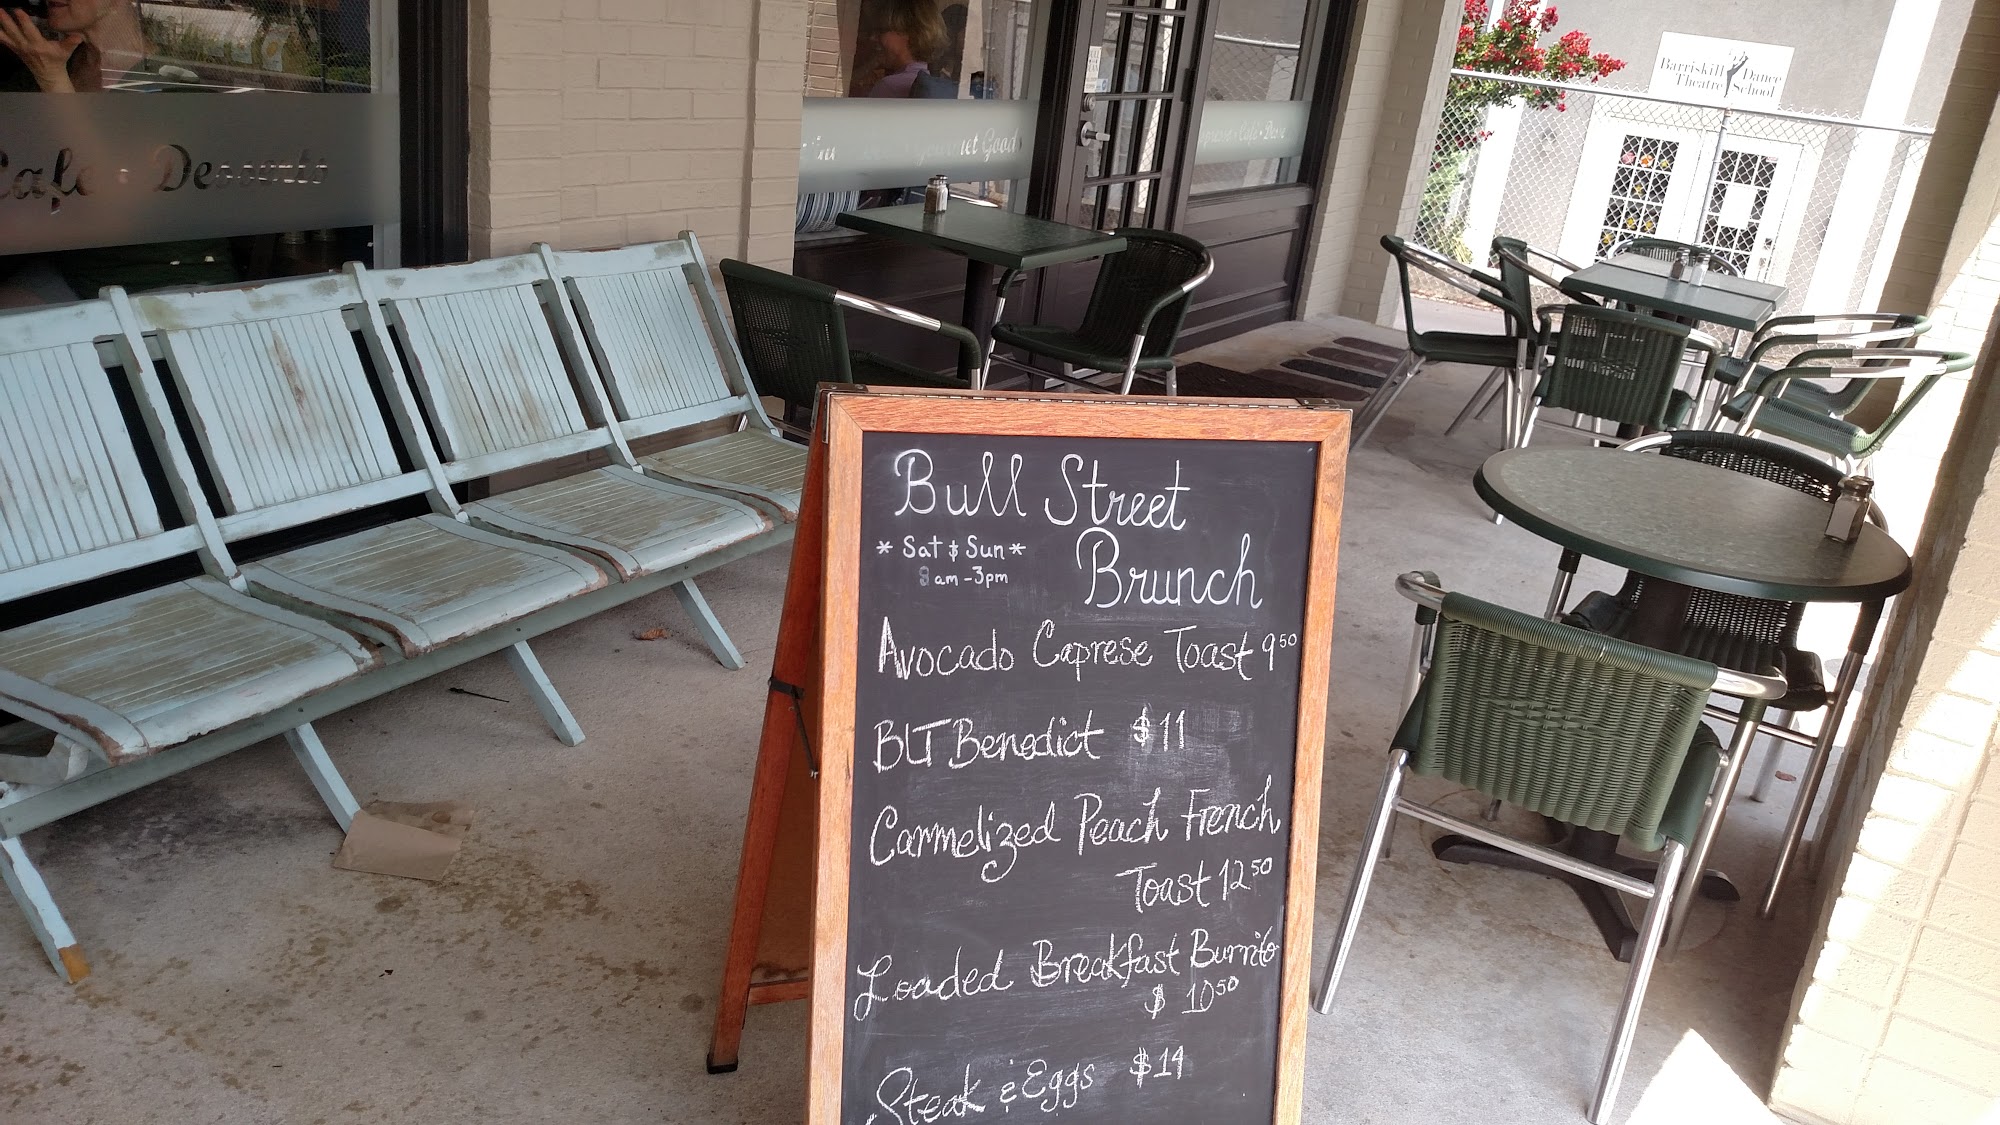 Café • Desserts
Gourmet Goods
Café • Desse
Barriskill Dance
Theatre School
Bull Street
Brunch
* Sat & Sun *
8am - 3pm
Avocado Caprese Toast 9⁵⁰
BLT Benedict $11
Carmelized Peach French
Toast 12⁵⁰
Loaded Breakfast Burrito
$ 10⁵⁰
Steak & Eggs $14